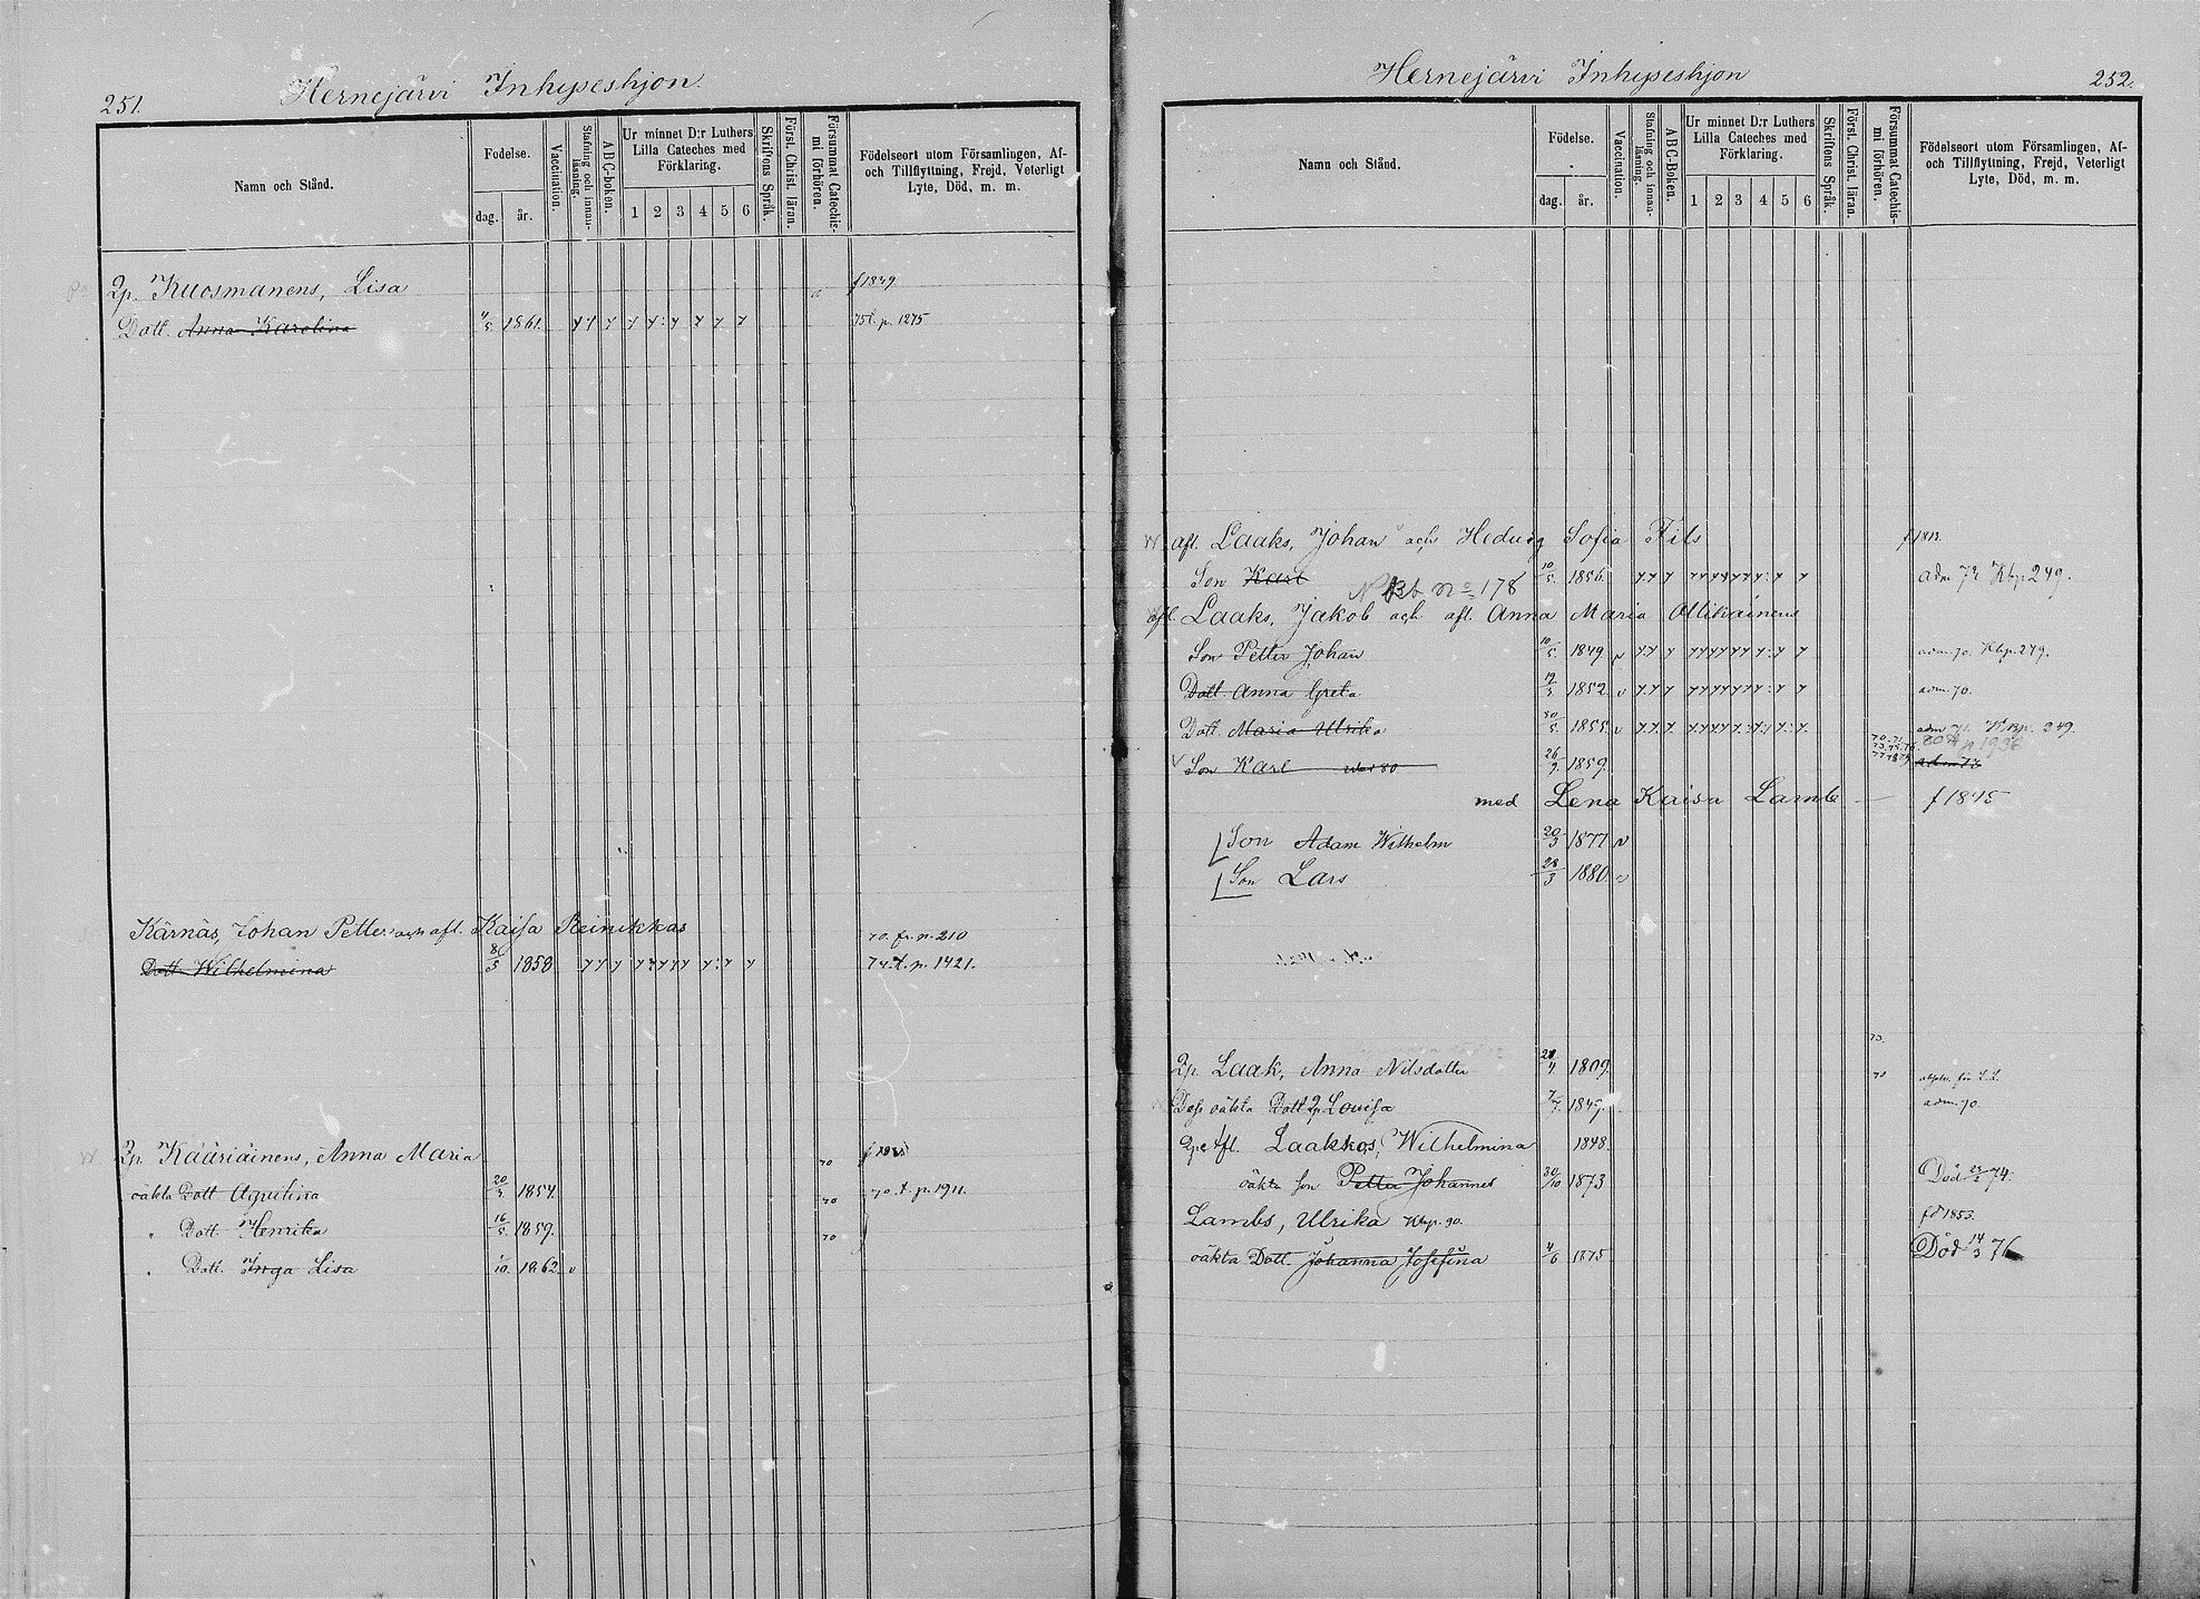 251.
Hernejärvi Inhyseshjon.
Namn och Stånd.
Födelse.
dag.
år.
Vaccination.
Stafning och innan-
läsning.
ABC-boken.
Ur minnet D:r Luthers
Lilla Cateches med
Förklaring.
1 2 3 4 5 6
Skriftens Språk.
Först. Christ. läran.
Försummat Catechis-
mi förhören.
Födelseort utom Församlingen, Af-
och Tillflyttning, Frejd, Veterligt
Lyte, Död, m. m.
Qp. Kuosmanens, Lisa f 1839
Dott. Anna Karolina 1861. 75 t. p. 1275
Kärnäs, Johan Petter och afl. Kaisa Reinikkas 70. fr. p. 210
Dott. Wilhelmina 8/5 1858 74. t. p. 1421.
Qp. Kääriäinens, Anna Maria 70
oäkta Dott Agutina 1854. 70 70. t. p. 1911.
" Dott. Henrika 16/5. 1859. 70
" Dott. Inga Lisa 1862. v
Hernejärvi Inhyseshjon
252.
Namn och Stånd.
Födelse.
dag.
år.
Vaccination.
Stafning och innan-
läsning.
ABC-Boken.
Ur minnet D:r Luthers
Lilla Cateches med
Förklaring.
1 2 3 4 5 6
Skriftens Språk.
Först. Christ. läran.
Försummat Catechis-
mi förhören.
Födelseort utom Församlingen, Af-
och Tillflyttning, Frejd, Veterligt
Lyte, Död, m. m.
afl. Laaks, Johan och Hedvig Sofia Fils
Son Karl 10/5. 1856. adm 72 Kbp 249.
N Kb n° 178
afl. Laaks, Jakob och afl. Anna Maria Ollikainens
Son Petter Johan 10/5. 1849 adm. 70. Kbp. 249.
Dott. Anna Greta 1852 v adm. 70.
Dott. Maria Ulrika 30/5. 1855. v adm 71. Kbp. 249.
Son Karl 26/9. 1859.
med Lena Kaisa Lamb f 1845
Son Adam Wilhelm 20/3 1877
Son Lars 28/3 1880.
73.
Qp. Laak, Anna Nilsdotter 1809.
Dess oäkta Dott Qp. Louisa 7/7. 1849. adm. 70.
afl. Laakkos, Wilhelmina 1848.
oäkta son Petter Johannes 30/10 1873 Död 74.
Lambs, Ulrika Kbp. 90. fd 1853.
oäkta Dott. Johanna Josefina 4/6 1875 Död 14/3 76